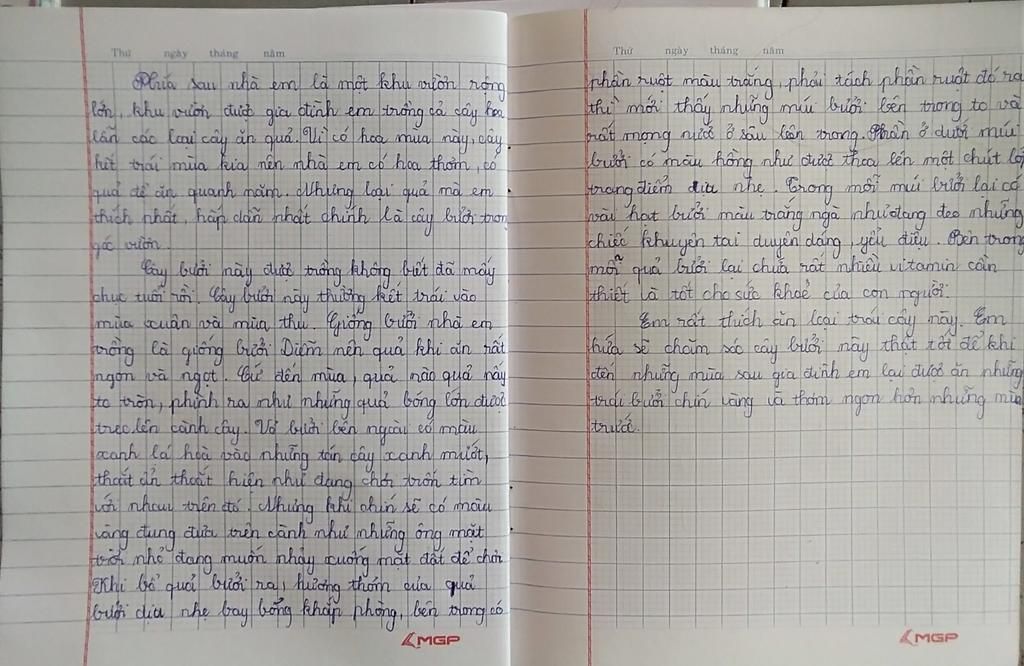 Thứ ngày tháng năm
Phía sau nhà em là một khu vườn rộng
lớn, khu vườn được gia đình em trồng cả cây hoa
lẫn các loại cây ăn quả. Vì có hoa mùa này, cây
hết trái mùa kia nên nhà em có hoa thơm, có
quả để ăn quanh năm. Nhưng loại quả mà em
thích nhất, hấp dẫn nhất chính là cây bưởi trong
góc vườn.
Cây bưởi này được trồng không biết đã mấy
chục tuổi rồi. Cây bưởi này thường kết trái vào
mùa xuân và mùa thu. Giống bưởi nhà em
trồng là giống bưởi Diễn nên quả khi ăn rất
ngon và ngọt. Cứ đến mùa, quả nào quả nấy
to tròn, phình ra như những quả bóng lớn được
treo lên cành cây. Vỏ bưởi bên ngoài có màu
xanh lá hoà vào những tán cây xanh mướt,
thoắt ẩn thoắt hiện như đang chơi trốn tìm
với nhau trên đó. Nhưng khi chín sẽ có màu
vàng đung đưa trên cành như những ông mặt
trời nhỏ đang muốn nhảy xuống mặt đất để chơi.
Khi bổ quả bưởi ra, hương thơm của quả
bưởi dịu nhẹ bay bổng khắp phòng, bên trong có
MGP
Thứ ngày tháng năm
phần ruột màu trắng, phải tách phần ruột đó ra
thì mới thấy những múi bưởi bên trong to và
rất mọng nước ở sâu bên trong. Phần ở dưới múi
bưởi có màu hồng như được thoa lên một chút lớp
trang điểm dịu nhẹ. Trong mỗi múi bưởi lại có
vài hạt bưởi màu trắng ngà như đang đeo những
chiếc khuyên tai duyên dáng, yểu điệu. Bên trong
mỗi quả bưởi lại chứa rất nhiều vitamin cần
thiết và tốt cho sức khoẻ của con người.
Em rất thích ăn loại trái cây này. Em
hứa sẽ chăm sóc cây bưởi này thật tốt để khi
đến những mùa sau gia đình em lại được ăn những
trái bưởi chín vàng và thơm ngon hơn những mùa
trước.
MGP